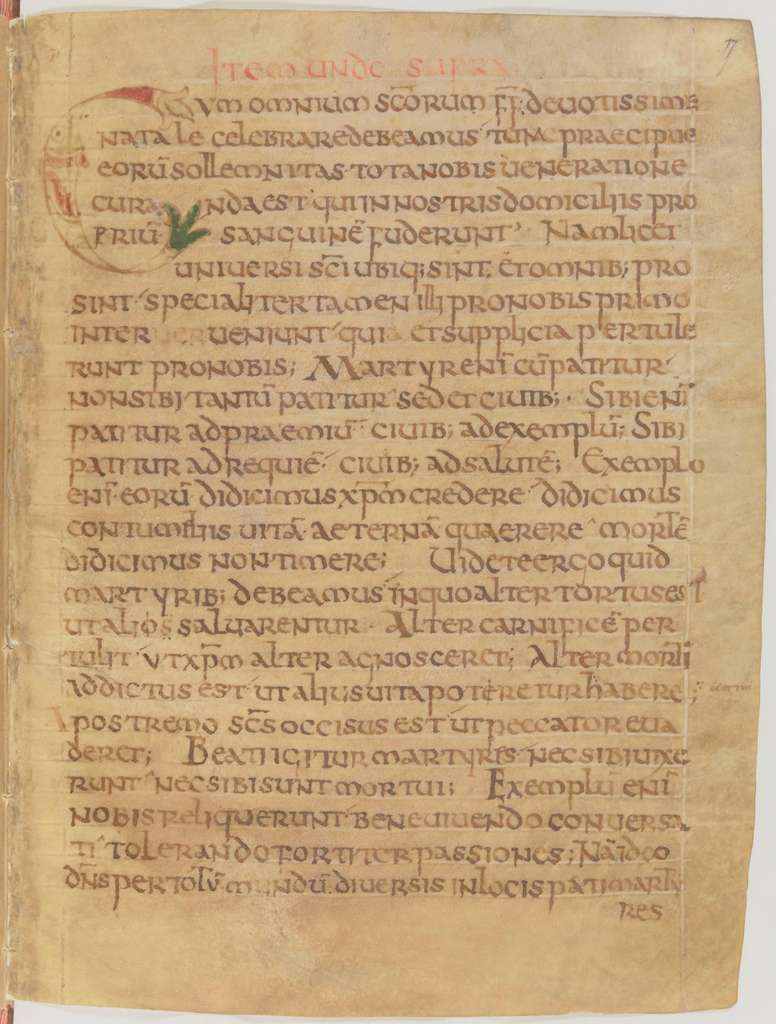 17
Item unde supra
Cum omnium scōrum fr̄ deuotissime
natale celebrare debeamus tum praecipue
eorū sollemnitas tota nobis ueneratione
curanda est qui in nostris domiciliis pro
priū sanguinē fuderunt Nam licet
uniuersi sc̄i ubiq; sint et omnib; pro
sint specialiter tamen illi pro nobis primo
inter ueniunt qui et supplicia pertule
runt pro nobis; Martyr enī cū patitur
non sibi tantū patitur sed et ciuib; Sibi enī
patitur ad praemiū ciuib; ad exemplū; Sibi
patitur ad requiē ciuib; ad salutē; Exemplo
enī eorū didicimus xp̄m credere didicimus
contumeliis uitā aeternā quaerere mortē
didicimus non timere; Uidete ergo quid
martyrib; debeamus in quo alter tortus est
ut alios saluarentur Alter carnificē per
tulit ut xp̄m alter agnosceret; Alter morti
addictus est ut alius uita poteretur habere;
postremo sc̄s occisus est ut peccator eua
deret; Beati igitur martyris nec sibi uixe
runt nec sibi sunt mortui; Exemplū enī
nobis reliquerunt bene uiuendo conuersa
ti tolerando fortiter passiones; Nā ideo
dn̄s per totū mundū diuersis in locis pati marty
res